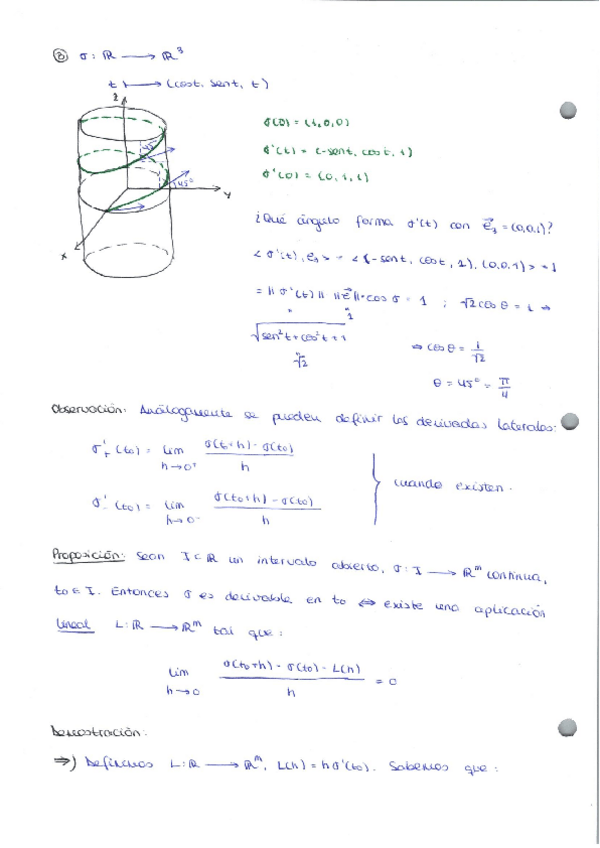 ③ σ: ℝ ⟶ ℝ³
t ⟼ (cost, sent, t)
z
45°
45°
y
x
σ(0) = (1,0,0)
σ'(t) = (-sent, cost, 1)
σ'(0) = (0,1,1)
¿Qué ángulo forma σ'(t) con e⃗₃ = (0,0,1)?
<σ'(t), e₃> = <(-sent, cost, 1), (0,0,1)> = 1
= ||σ'(t)|| ||e⃗||·cos σ = 1 ; √2 cos θ = 1 ⇒
" "
1
√(sen²t + cos²t + 1) ⇒ cos θ = 1/√2
"
√2
θ = 45° = π/4
Observación: Análogamente se pueden definir las derivadas laterales:
σ'₊(t₀) = lim h→0⁺ (σ(t₀+h) - σ(t₀))/h
cuando existen.
σ'₋(t₀) = lim h→0⁻ (σ(t₀+h) - σ(t₀))/h
Proposición: Sean I ⊂ ℝ un intervalo abierto, σ: I ⟶ ℝᵐ continua,
t₀ ∈ I. Entonces σ es derivable en t₀ ⇔ existe una aplicación
lineal L: ℝ ⟶ ℝᵐ tal que:
lim h→0 (σ(t₀+h) - σ(t₀) - L(h))/h = 0
Demostración:
⇒) Definimos L: ℝ ⟶ ℝᵐ, L(h) = hσ'(t₀). Sabemos que: